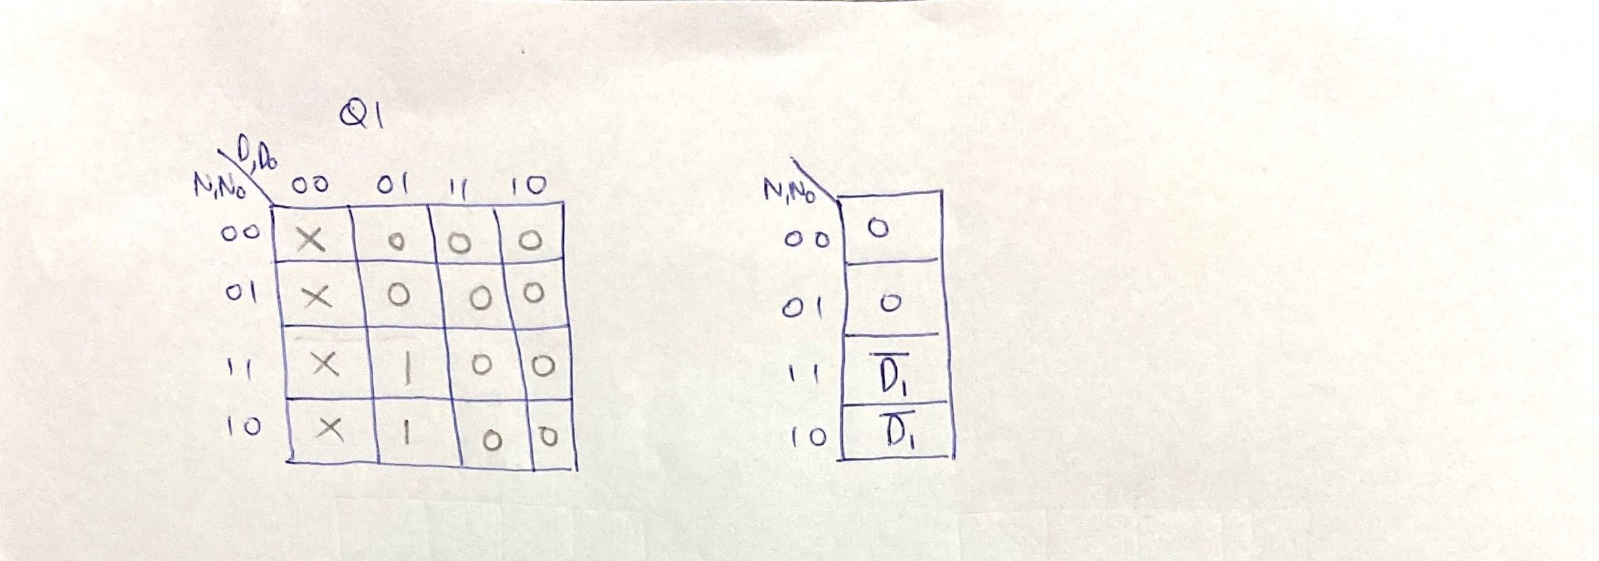 Q1
D₁D₀
N₁N₀ 00 01 11 10
00 X 0 0 0
01 X 0 0 0
11 X 1 0 0
10 X 1 0 0
N₁N₀
00 0
01 0
11 D̅₁
10 D̅₁